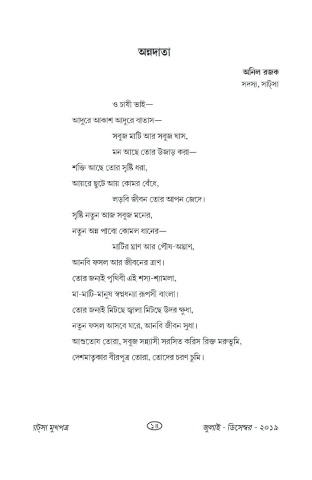 অন্নদাতা
অনিল রজক
সদস্য, সাট্সা
ও চাষী ভাই—
আদুরে আকাশ আদুরে বাতাস—
সবুজ মাটি আর সবুজ ঘাস,
মন আছে তোর উজাড় করা—
শক্তি আছে তোর সৃষ্টি ধরা,
আয়রে ছুটে আয় কোমর বেঁধে,
লড়বি জীবন তোর আপন জেদে।
সৃষ্টি নতুন আজ সবুজ মনের,
নতুন অন্ন পাবো কোমল ধানের—
মাটির ঘ্রাণ আর পৌষ-অঘ্রাণ,
আনবি ফসল আর জীবনের ত্রাণ।
তোর জন্যই পৃথিবী এই শস্য-শ্যামলা,
মা-মাটি-মানুষ স্বপ্নধন্যা রূপসী বাংলা।
তোর জন্যই মিটছে জ্বালা মিটছে উদর ক্ষুধা,
নতুন ফসল আসবে ঘরে, আনবি জীবন সুধা।
আশুতোষ তোরা, সবুজ সন্ন্যাসী সরসিত করিস রিক্ত মরুভূমি,
দেশমাতৃকার বীরপুত্র তোরা, তোদের চরণ চুমি।
সাট্সা মুখপত্র
১৪
জুলাই - ডিসেম্বর - ২০১৯